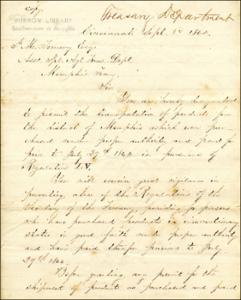 Copy
MORROW LIBRARY
Treasury Department
Cincinnati Sept. 1st 1864.
T. M. Esq.
Asst. Spl. Agt. Treas. Dept.
Memphis Tenn.
Sir
You are hereby
to permit the transportation of products from
the district of Memphis which were
under proper authority and paid for
prior to July 29th 1864 in pursuance of
Regulation
You will exercise great vigilance in
preventing abuse of the Regulations of the
Secretary of the Treasury providing for persons
who have purchased products in insurrectionary
states in good faith under proper authority
and have paid therefor previous to July
29th 1864.
Before granting any permit for the
shipment of products so purchased and paid